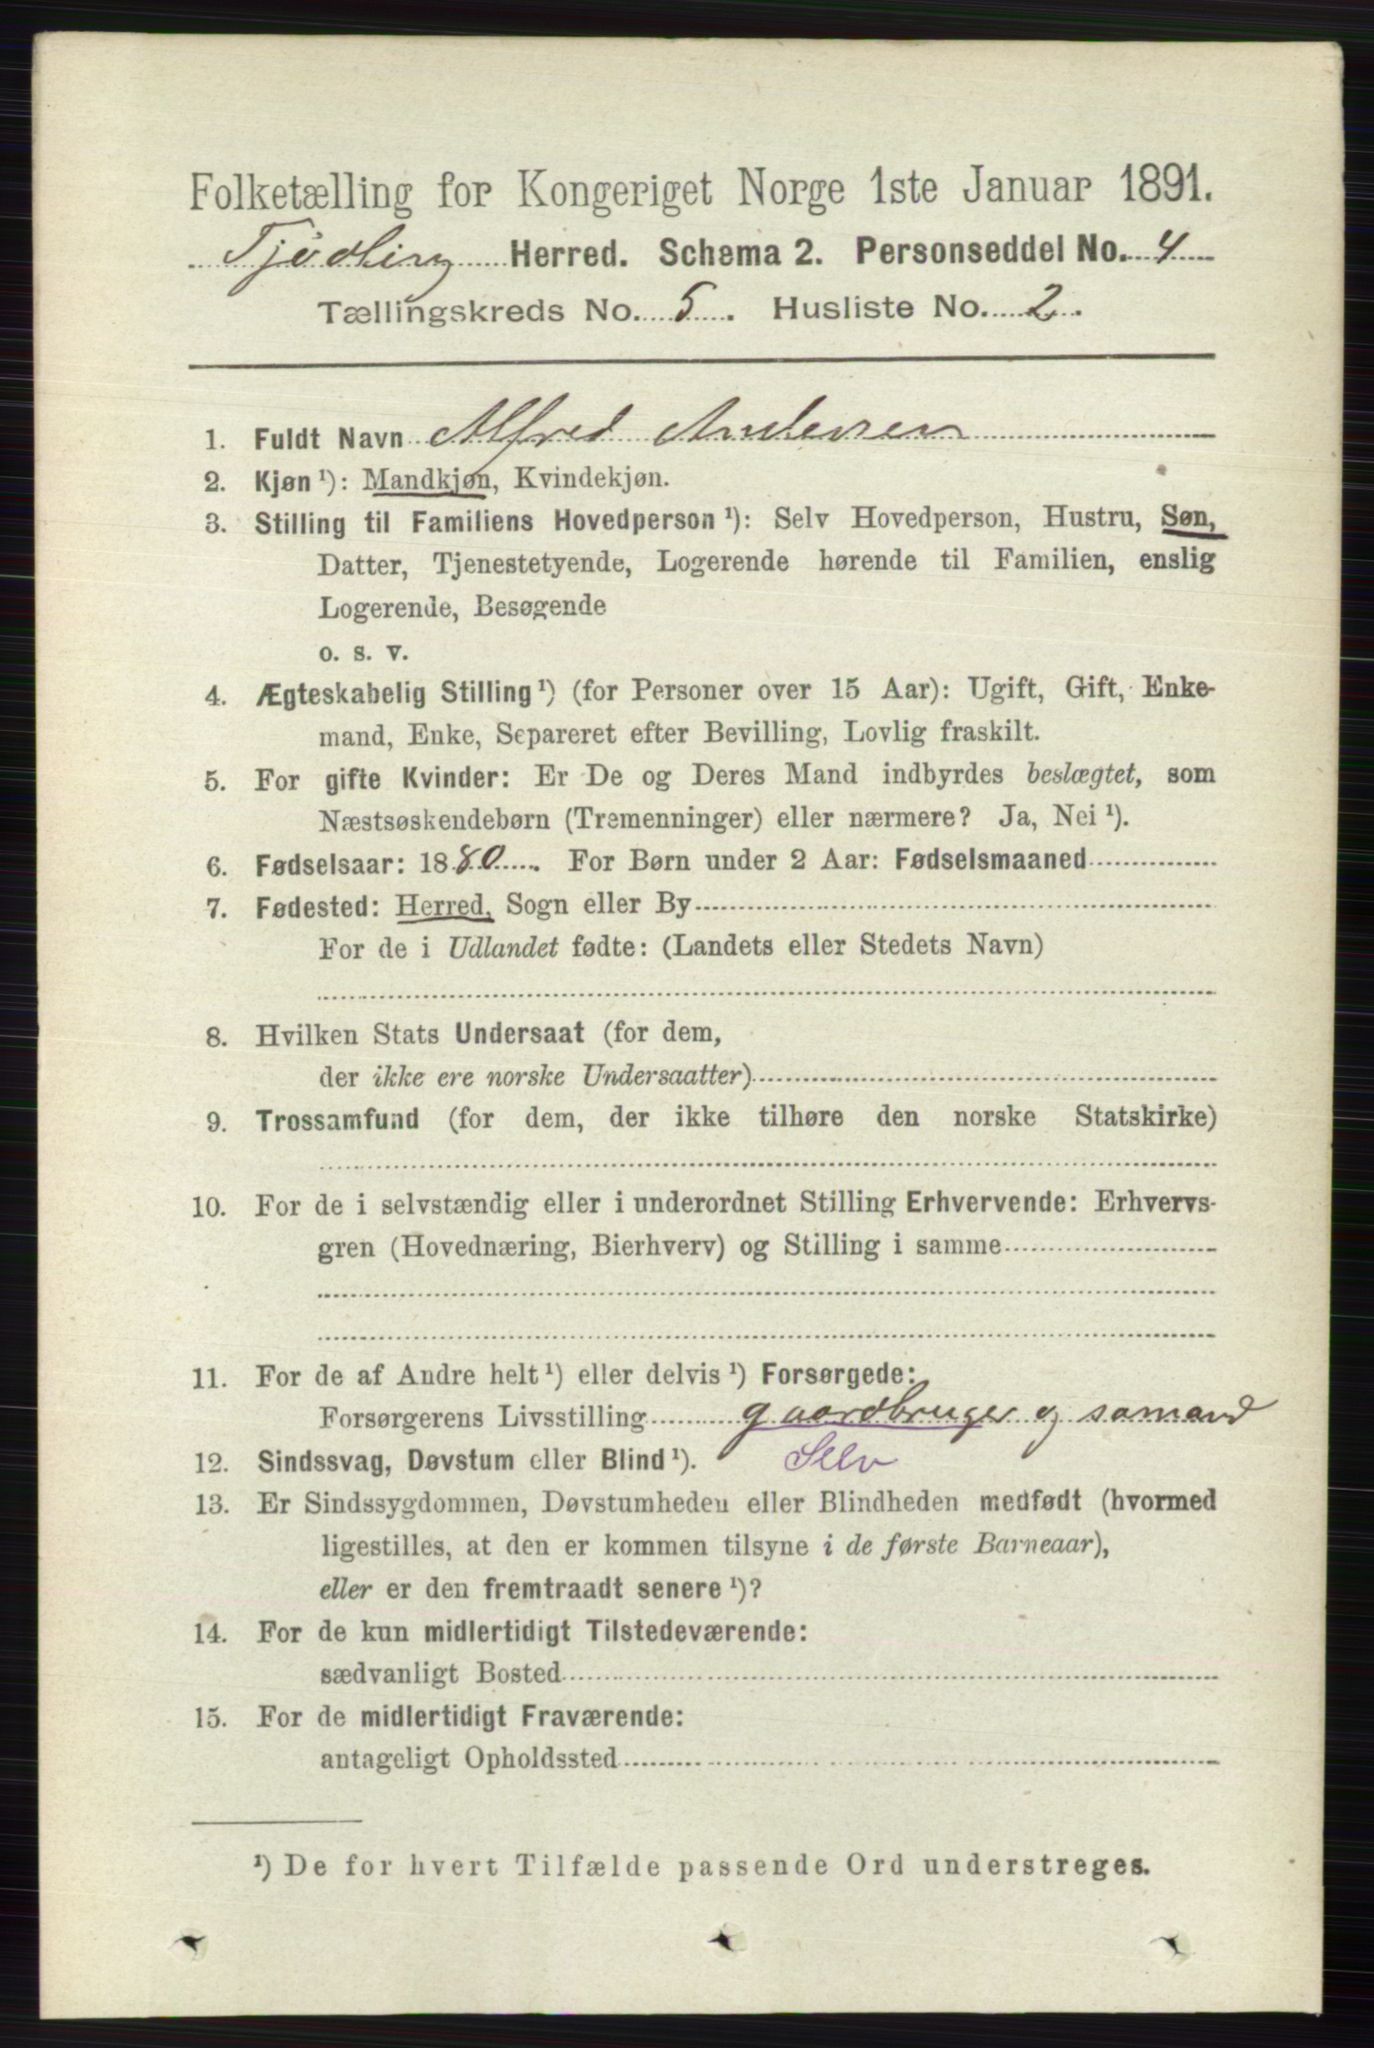 Folketælling for Kongeriget Norge 1ste Januar 1891.
Tjødling Herred. Schema 2. Personseddel No. 4
Tællingskreds No. 5. Husliste No. 2.
1. Fuldt Navn Alfred Andersen
2. Kjøn ¹): Mandkjøn, Kvindekjøn.
3. Stilling til Familiens Hovedperson ¹): Selv Hovedperson, Hustru, Søn,
Datter, Tjenestetyende, Logerende hørende til Familien, enslig
Logerende, Besøgende
o. s. v.
4. Ægteskabelig Stilling ¹) (for Personer over 15 Aar): Ugift, Gift, Enke-
mand, Enke, Separeret efter Bevilling, Lovlig fraskilt.
5. For gifte Kvinder: Er De og Deres Mand indbyrdes beslægtet, som
Næstsøskendebørn (Tremenninger) eller nærmere? Ja, Nei ¹).
6. Fødselsaar: 1880. For Børn under 2 Aar: Fødselsmaaned
7. Fødested: Herred, Sogn eller By
For de i Udlandet fødte: (Landets eller Stedets Navn)
8. Hvilken Stats Undersaat (for dem,
der ikke ere norske Undersaatter)
9. Trossamfund (for dem, der ikke tilhøre den norske Statskirke)
10. For de i selvstændig eller i underordnet Stilling Erhvervende: Erhvervs-
gren (Hovednæring, Bierhverv) og Stilling i samme
11. For de af Andre helt ¹) eller delvis ¹) Forsørgede:
Forsørgerens Livsstilling gaardbruger og sømand
12. Sindssvag, Døvstum eller Blind ¹). Selv
13. Er Sindssygdommen, Døvstumheden eller Blindheden medfødt (hvormed
ligestilles, at den er kommen tilsyne i de første Barneaar),
eller er den fremtraadt senere ¹)?
14. For de kun midlertidigt Tilstedeværende:
sædvanligt Bosted
15. For de midlertidigt Fraværende:
antageligt Opholdssted
¹) De for hvert Tilfælde passende Ord understreges.